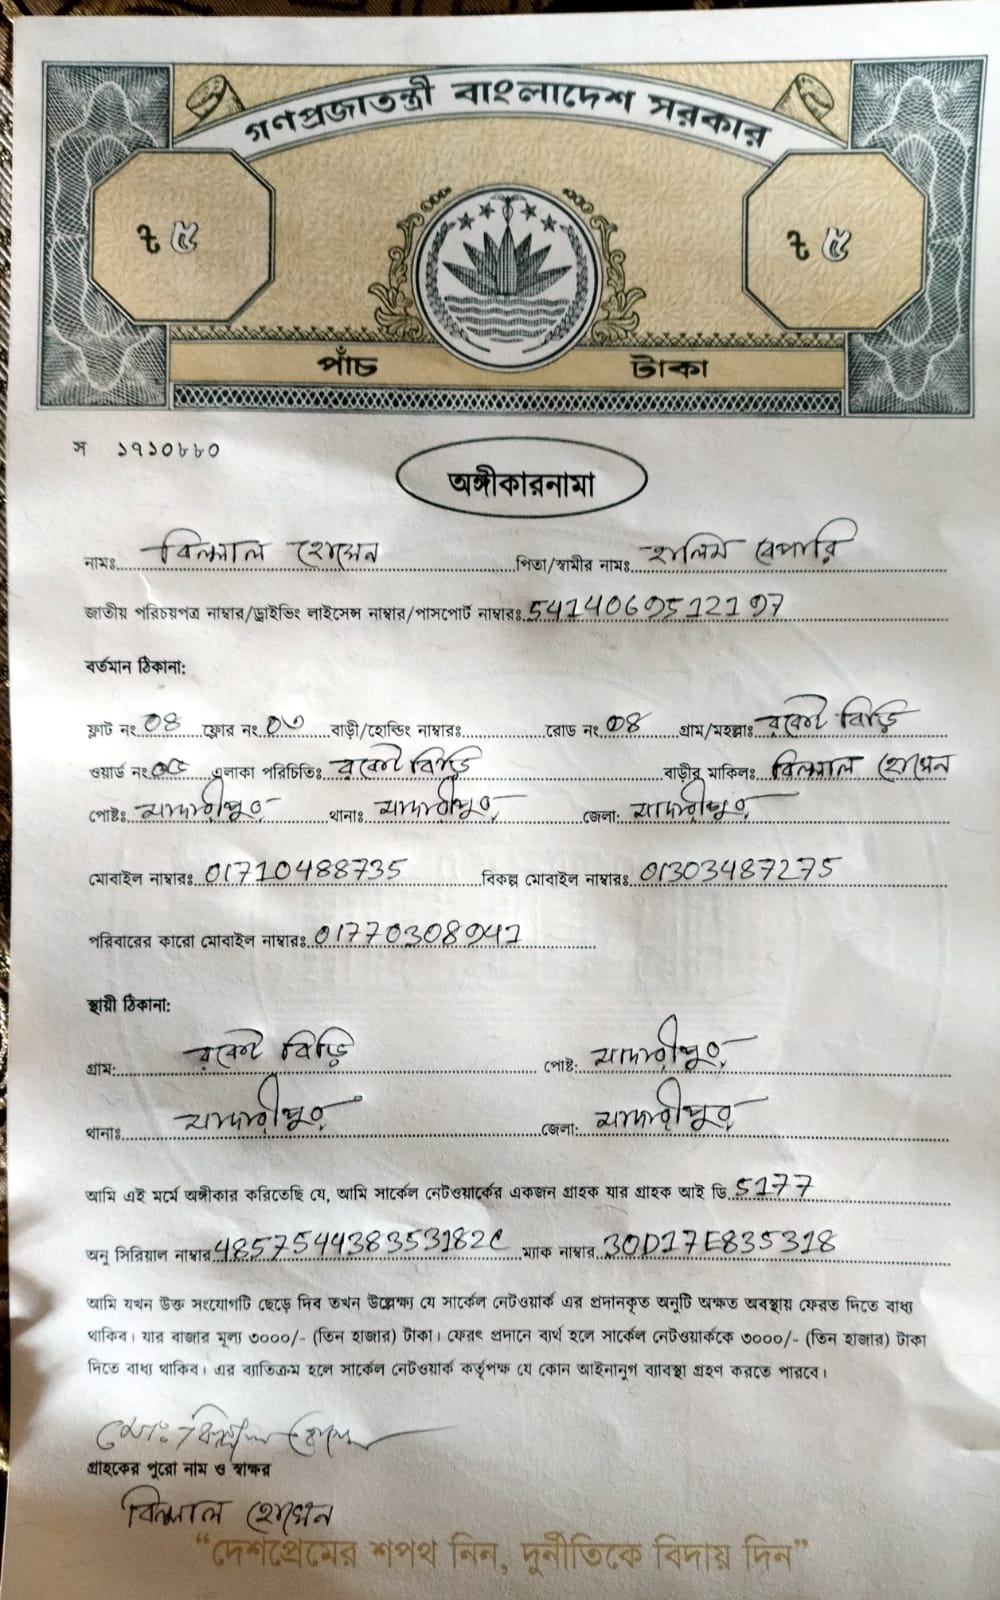 গণপ্রজাতন্ত্রী বাংলাদেশ সরকার
৳ ৫ ৳ ৫
পাঁচ টাকা
স ১৭১০৮৮০
অঙ্গীকারনামা
নামঃ বিল্লাল হোসেন পিতা/স্বামীর নামঃ হালিম বেপারি
জাতীয় পরিচয়পত্র নাম্বার/ড্রাইভিং লাইসেন্স নাম্বার/পাসপোর্ট নাম্বারঃ
বর্তমান ঠিকানা:
ফ্লাট নং 08 ফ্লোর নং ০৩ বাড়ী/হোল্ডিং নাম্বারঃ রোড নং 08 গ্রাম/মহল্লাঃ
ওয়ার্ড নং ০৫ এলাকা পরিচিতিঃ বাড়ীর মালিকঃ বিল্লাল হোসেন
পোষ্টঃ মাদারীপুর থানাঃ মাদারীপুর জেলা: মাদারীপুর
মোবাইল নাম্বারঃ 01710488735 বিকল্প মোবাইল নাম্বারঃ 01303487275
পরিবারের কারো মোবাইল নাম্বারঃ
স্থায়ী ঠিকানা:
গ্রাম: পোষ্ট: মাদারীপুর
থানাঃ মাদারীপুর জেলা: মাদারীপুর
আমি এই মর্মে অঙ্গীকার করিতেছি যে, আমি সার্কেল নেটওয়ার্কের একজন গ্রাহক যার গ্রাহক আই ডি 5177
অনু সিরিয়াল নাম্বার 485754438353182C ম্যাক নাম্বার 30D17E835318
আমি যখন উক্ত সংযোগটি ছেড়ে দিব তখন উল্লেক্ষ্য যে সার্কেল নেটওয়ার্ক এর প্রদানকৃত অনুটি অক্ষত অবস্থায় ফেরত দিতে বাধ্য
থাকিব। যার বাজার মূল্য ৩০০০/- (তিন হাজার) টাকা। ফেরৎ প্রদানে ব্যর্থ হলে সার্কেল নেটওয়ার্ককে ৩০০০/- (তিন হাজার) টাকা
দিতে বাধ্য থাকিব। এর ব্যাতিক্রম হলে সার্কেল নেটওয়ার্ক কর্তৃপক্ষ যে কোন আইনানুগ ব্যাবস্থা গ্রহণ করতে পারবে।
মোঃ বিল্লাল হোসেন
গ্রাহকের পুরো নাম ও স্বাক্ষর
বিল্লাল হোসেন
“দেশপ্রেমের শপথ নিন, দুর্নীতিকে বিদায় দিন”